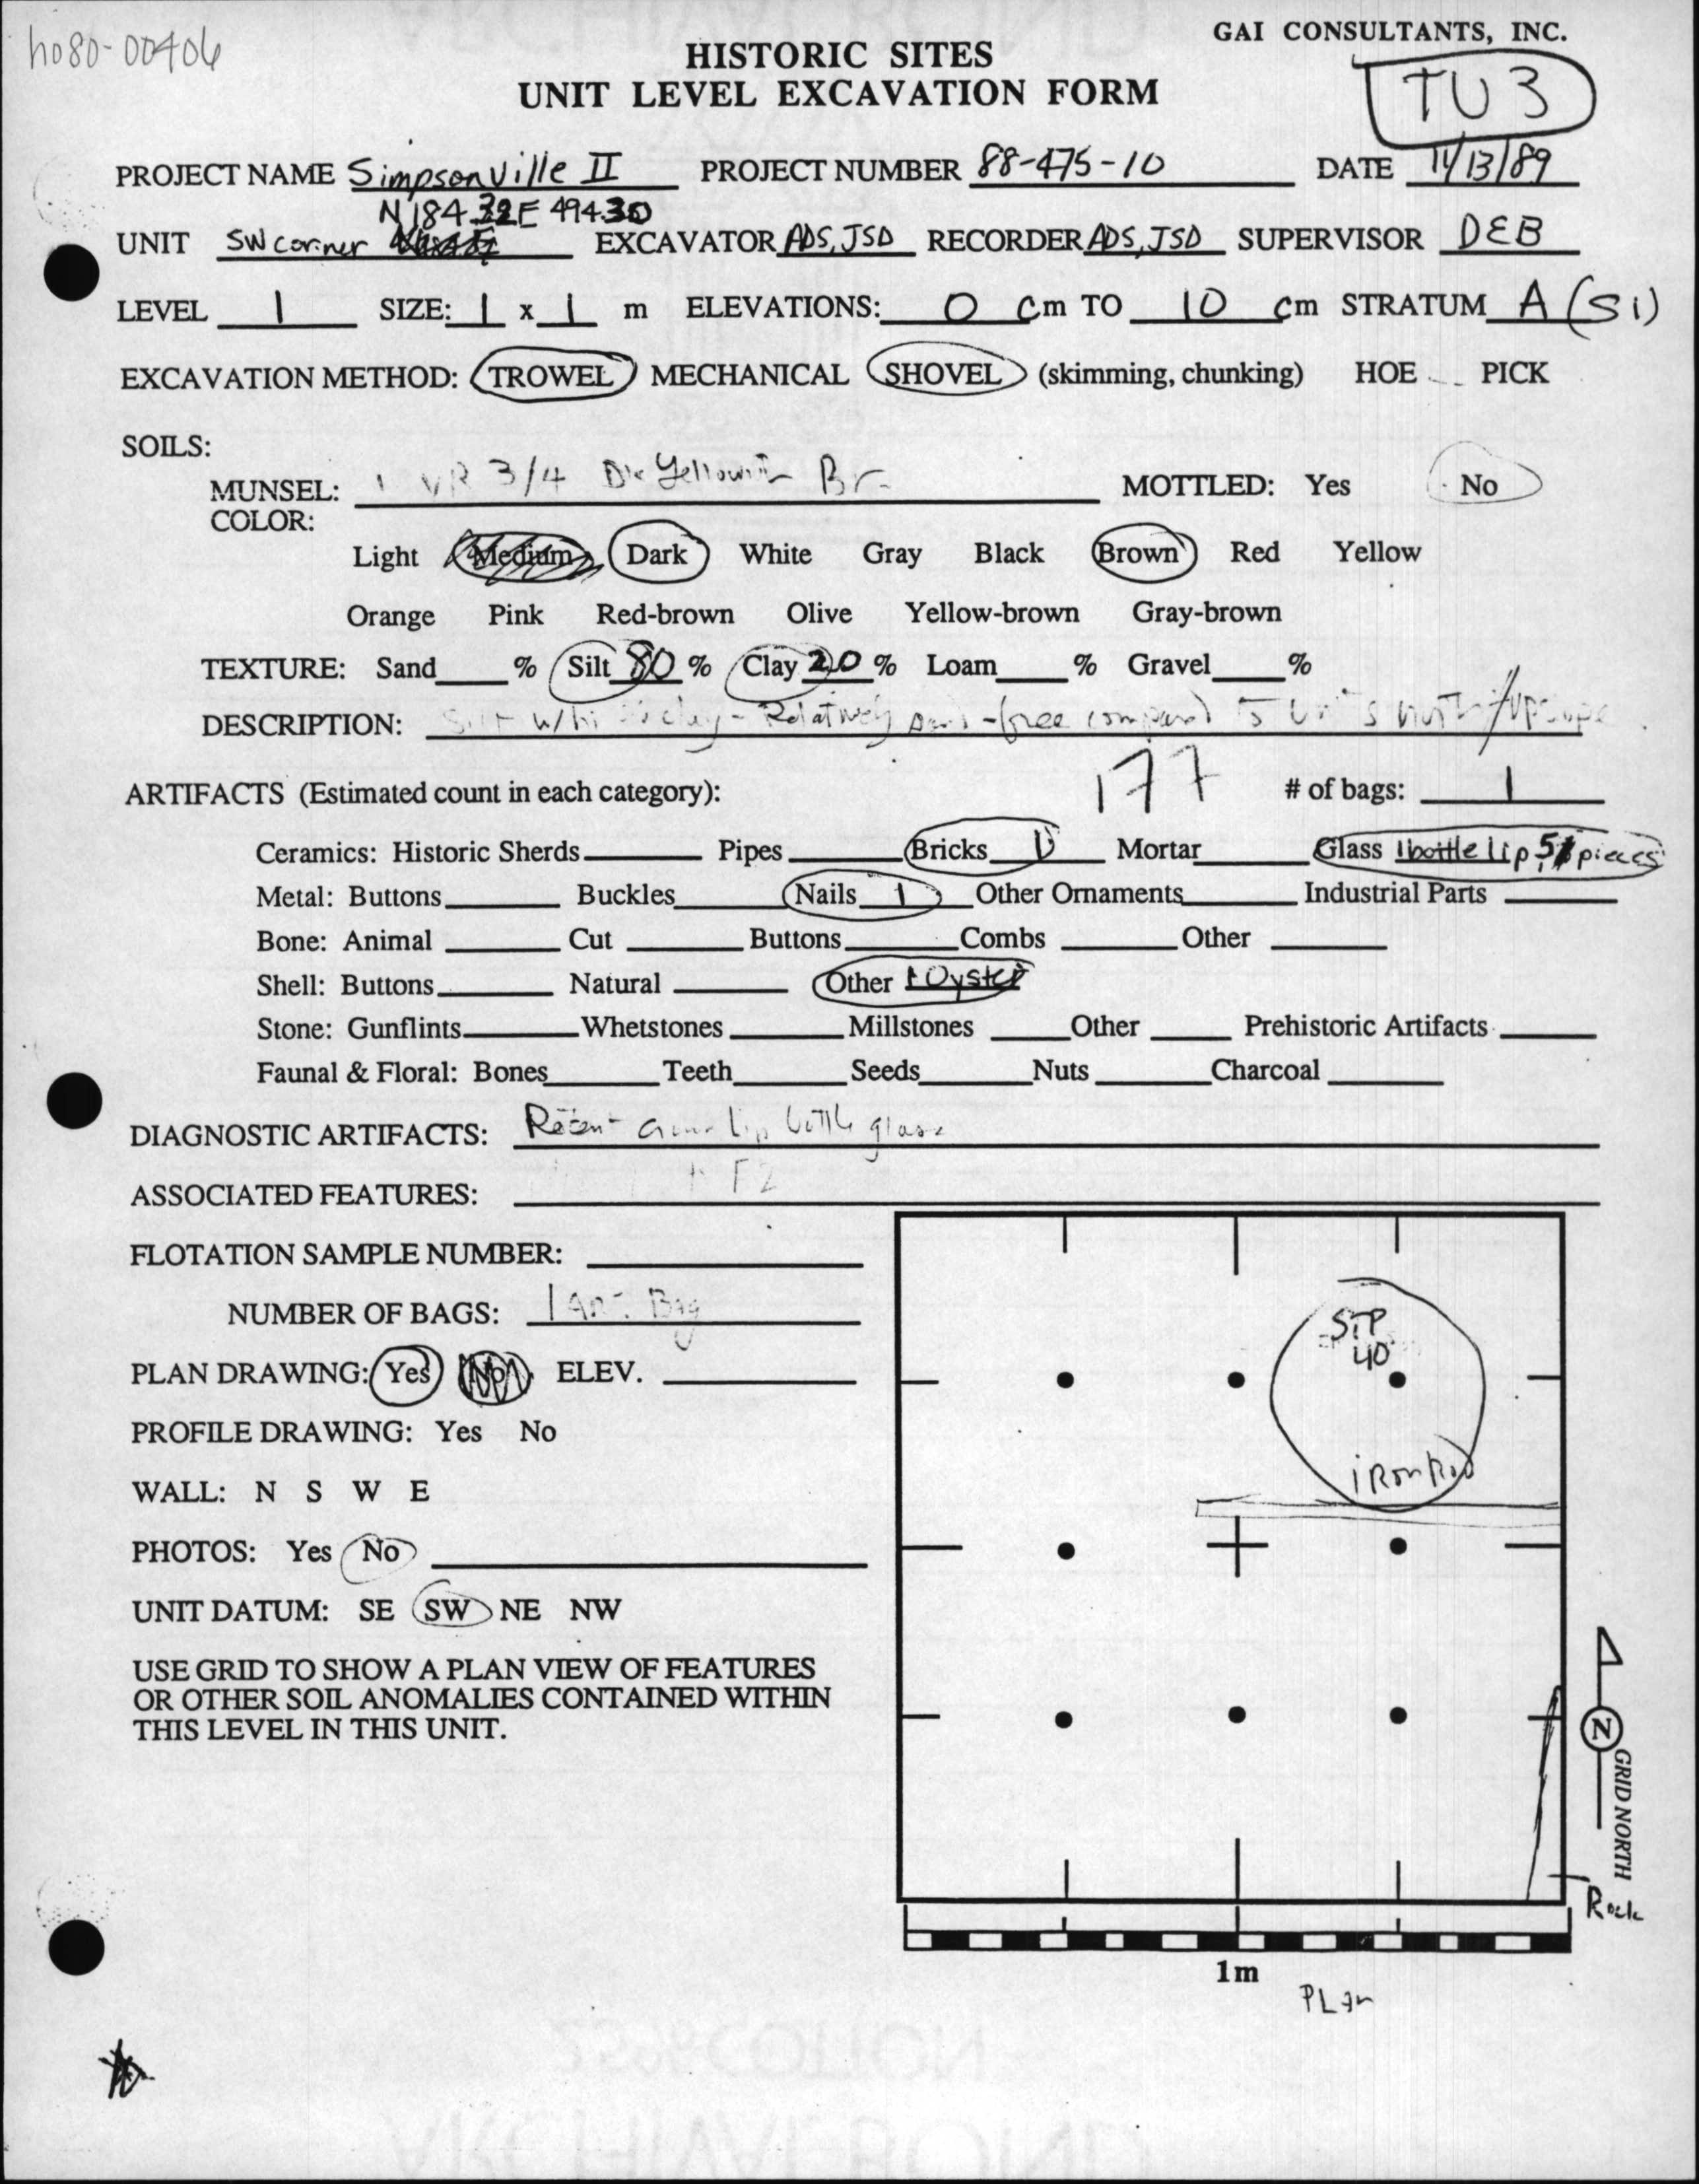 ho80-00406
GAI CONSULTANTS, INC.
HISTORIC SITES
UNIT LEVEL EXCAVATION FORM
TU 3
PROJECT NAME Simpsonville II PROJECT NUMBER 88-475-10 DATE 11/13/89
N 184.32 E 494.30
UNIT SW corner EXCAVATOR ADS, JSD RECORDER ADS, JSD SUPERVISOR DEB
LEVEL 1 SIZE: 1 x 1 m ELEVATIONS: 0 cm TO 10 cm STRATUM A (Si)
EXCAVATION METHOD: TROWEL MECHANICAL SHOVEL (skimming, chunking) HOE PICK
SOILS:
MUNSEL: YR 3/4 Dk Yellowish Br. MOTTLED: Yes No
COLOR:
Light Medium Dark White Gray Black Brown Red Yellow
Orange Pink Red-brown Olive Yellow-brown Gray-brown
TEXTURE: Sand % Silt 80 % Clay 20 % Loam % Gravel %
DESCRIPTION: Silt w/ clay - Relatively -free compared to Units north/upslope
ARTIFACTS (Estimated count in each category): 177 # of bags: 1
Ceramics: Historic Sherds Pipes Bricks Mortar Glass 1 bottle lip, 5 pieces
Metal: Buttons Buckles Nails 1 Other Ornaments Industrial Parts
Bone: Animal Cut Buttons Combs Other
Shell: Buttons Natural Other 1 Oyster
Stone: Gunflints Whetstones Millstones Other Prehistoric Artifacts
Faunal & Floral: Bones Teeth Seeds Nuts Charcoal
DIAGNOSTIC ARTIFACTS: Recent lip bottle glass
ASSOCIATED FEATURES: F2
FLOTATION SAMPLE NUMBER:
NUMBER OF BAGS: 1 Art. Bag
PLAN DRAWING: Yes No ELEV.
PROFILE DRAWING: Yes No
WALL: N S W E
PHOTOS: Yes No
UNIT DATUM: SE SW NE NW
USE GRID TO SHOW A PLAN VIEW OF FEATURES
OR OTHER SOIL ANOMALIES CONTAINED WITHIN
THIS LEVEL IN THIS UNIT.
STP
40
iron Rod
N
GRID NORTH
Rock
1m
PLan